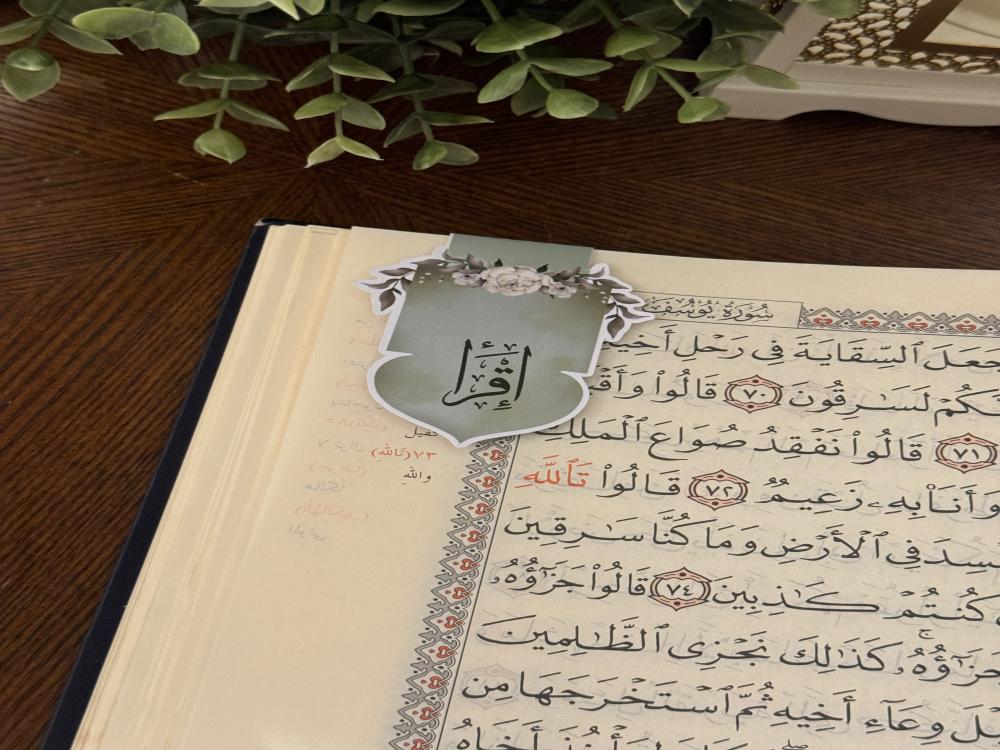 سُورَةُ يُوسُفَ
اقْرَأْ
جَعَلَ ٱلسِّقَايَةَ فِى رَحْلِ أَخِيهِ
لَسَٰرِقُونَ ۝٧٠ قَالُوا۟ وَأَقْبَ
۝٧١ قَالُوا۟ نَفْقِدُ صُوَاعَ ٱلْمَلِكِ
وَأَنَا۠ بِهِۦ زَعِيمٌ ۝٧٢ قَالُوا۟ تَٱللَّهِ
فِى ٱلْأَرْضِ وَمَا كُنَّا سَٰرِقِينَ
كُنتُمْ كَٰذِبِينَ ۝٧٤ قَالُوا۟ جَزَٰٓؤُهُۥ
جَزَٰٓؤُهُۥ ۚ كَذَٰلِكَ نَجْزِى ٱلظَّٰلِمِينَ
وِعَآءِ أَخِيهِ ثُمَّ ٱسْتَخْرَجَهَا مِن
كفيل
٧٣ (تَاللَّهِ)
واللهِ